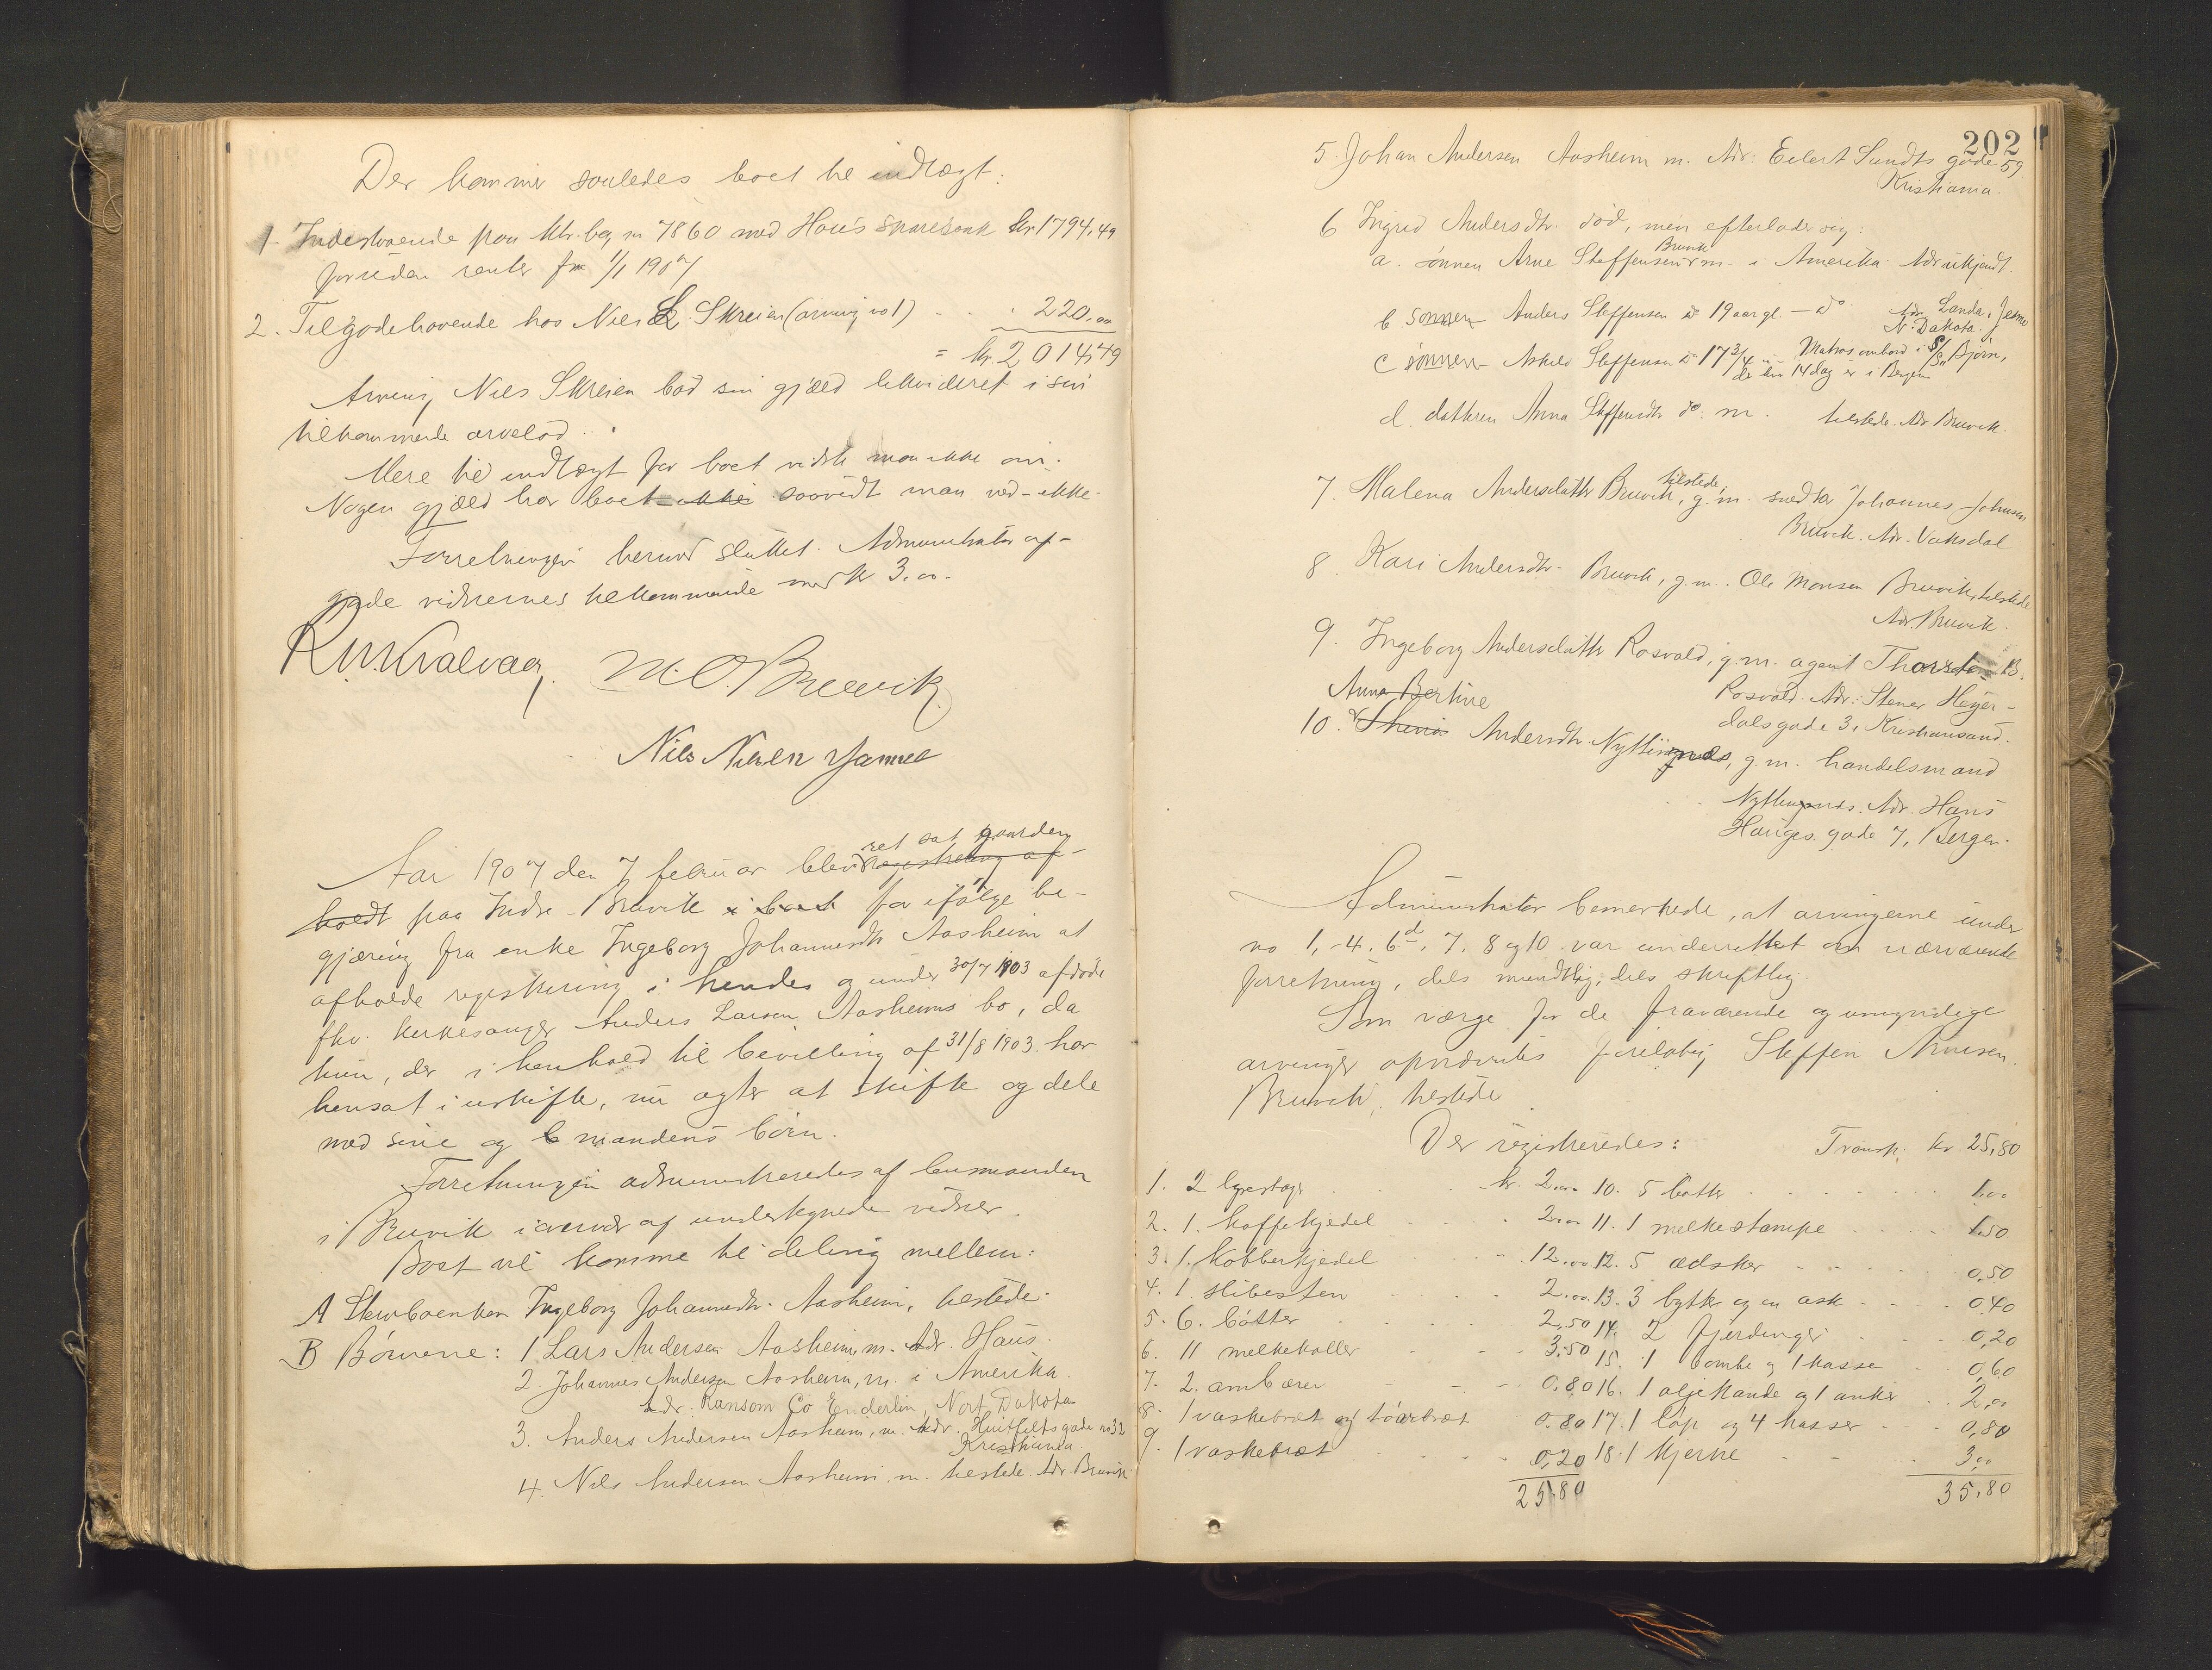 Der kommer saaledes boet til indtægt:
1. Indestaaende paa ktr. bog nr 7860 med Haus sparebank kr 1794,49
foruden renter fra 1/1 1907
2. Tilgodehavende hos Niels L. Skreien (arving no 1) . . . 220,00
= kr. 2014,49
Arving Niels Skreien bad sin gjæld likvideret i sin
tilkommende arvelod.
Mere til indtægt for boet vidste man ikke om.
Nogen gjæld har boet ikke saavidt man ved - ikke.
Forretningen hermed sluttet. Administrator af-
gjorde vidnernes tilkommende med kr 3.00.
R.M. Kvalvaag M. O. Bruvik
Nils Nilsen
Aar 1907 den 7 februar blev registrering af
ret sat gaarden
holdt paa Indre-Bruvik i boet for ifølge be-
gjæring fra enke Ingeborg Johannesdtr Aasheim at
afholde registrering i hendes og under 30/7 1903 afdøde
fhv. kirkesanger Anders Larsen Aasheims bo, da
hun, der i henhold til bevilling af 31/8 1903 har
hensat i uskifte, nu agter at skifte og dele
med sine og mandens børn.
Forretningen administreredes af lensmanden
i Bruvik i overvær af undertegnede vidner.
Boet vil komme til deling mellem:
A Sterboenken Ingeborg Johannesdtr. Aasheim, tilstede.
B Børnene: 1 Lars Andersen Aasheim, m. Adr. Haus.
2 Johannes Andersen Aasheim, m. i Amerika
Adr. Ransom Co Enderlin, Nort Dakota
3. Anders Andersen Aasheim, m. Adr. Huitfelts gade no 32
Kristiania
4. Nils Andersen Aasheim, m. tilstede. Adr. Bruvik
202
5. Johan Andersen Aasheim m. Adr: Eilert Sundts gade 59
Kristiania.
6 Ingrid Andersdtr. død, men efterlader sig:
a. sønnen Arne Steffensen Bruvik m. i Amerika Adr ukjendt.
b. sønnen Anders Steffensen do 19 aar gl. — do Adr. Landa,
N. Dakota.
c sønnen Askild Steffensen do 17 3/4 " — Matros ombord i S/S Bjørn,
der hver 14 dag er i Bergen
d. dattren Anna Steffensdtr do. m. tilstede. Adr Bruvik.
7. Malena Andersdatter Bruvik, tilstede, g. m. snedker Johannes Johnsen
Bruvik. Adr. Vaksdal
8. Kari Andersdtr. Bruvik, g. m. Ole Monsen Bruvik, tilstede
Adr. Bruvik.
9. Ingeborg Andersdatter Rosvald, g. m. agent Thorstein B.
Rosvold. Adr: Stener Heyer-
dalsgade 3, Kristiansand.
Anna Bertine
10. Andersdtr. Nyttingnæs, g. m. handelsmand
Nyttingnæs. Adr. Hans
Hauges gade 7, Bergen.
Administrator bemerkede, at arvingerne under
no 1, 4, 6d, 7, 8 og 10 var underrettet om nærværende
forretning, dels mundtlig, dels skriftlig.
Som værge for de fraværende og umyndige
arvinger opnævntes foreløbig Steffen Arnesen
Bruvik, tilstede
Der registreredes: Transp. kr. 25,80
1. 2 lysestager kr. 2.00 10. 5 bøtter 1.00
2. 1. kaffekjedel 2.00 11. 1 melkestampe 1.50
3. 1. kobberkjedel 12.00 12. 5 ædsker 0,50
4. 1 slibesten 2.00 13. 3 bytter og en ask 0.40
5. 6. bøtter 2,50 14. 2 fjerdinger 0,20
6. 11 melkekoller 3.50 15. 1 bomke og 1 kasse 0,60
7. 2. ambærer 0.80 16. 1 oljekande og 1 anker 2,00
8. 1 vaskebræt og tøirbræt 0.80 17. 1 løp og 4 kasser 0,80
9. 1 vaskebræt 0,20 18. 1 kjerne 3,00
25,80 35,80